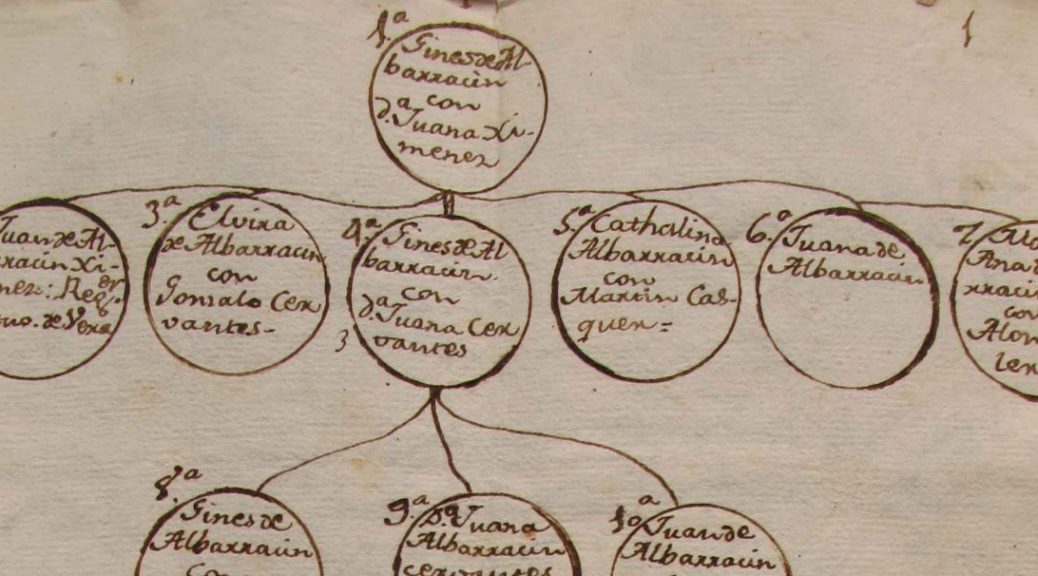 1.ª
1
Gines de Al-
barracin
con
d.ª Juana Xi-
menez
Juan de Al-
rracin Xi-
nez: Reg.or
de Vera
3.ª
Elvira
de Albarracin
con
Gonsalo Cer
vantes-
4.ª
Gines de Al
barracin.
con
d.ª Juana Cer
vantes
3
5.ª
Catholina
Albarracin
con
Martin Cas-
quer=
6.ª
Juana de
Albarracin
7.
Ana d
rracin
con
Alon
ler
8.ª
Gines de
Albarracin
con
9.ª
D.ª Juana
Albarracin
cervantes
10.ª
Juan de
Albarracin